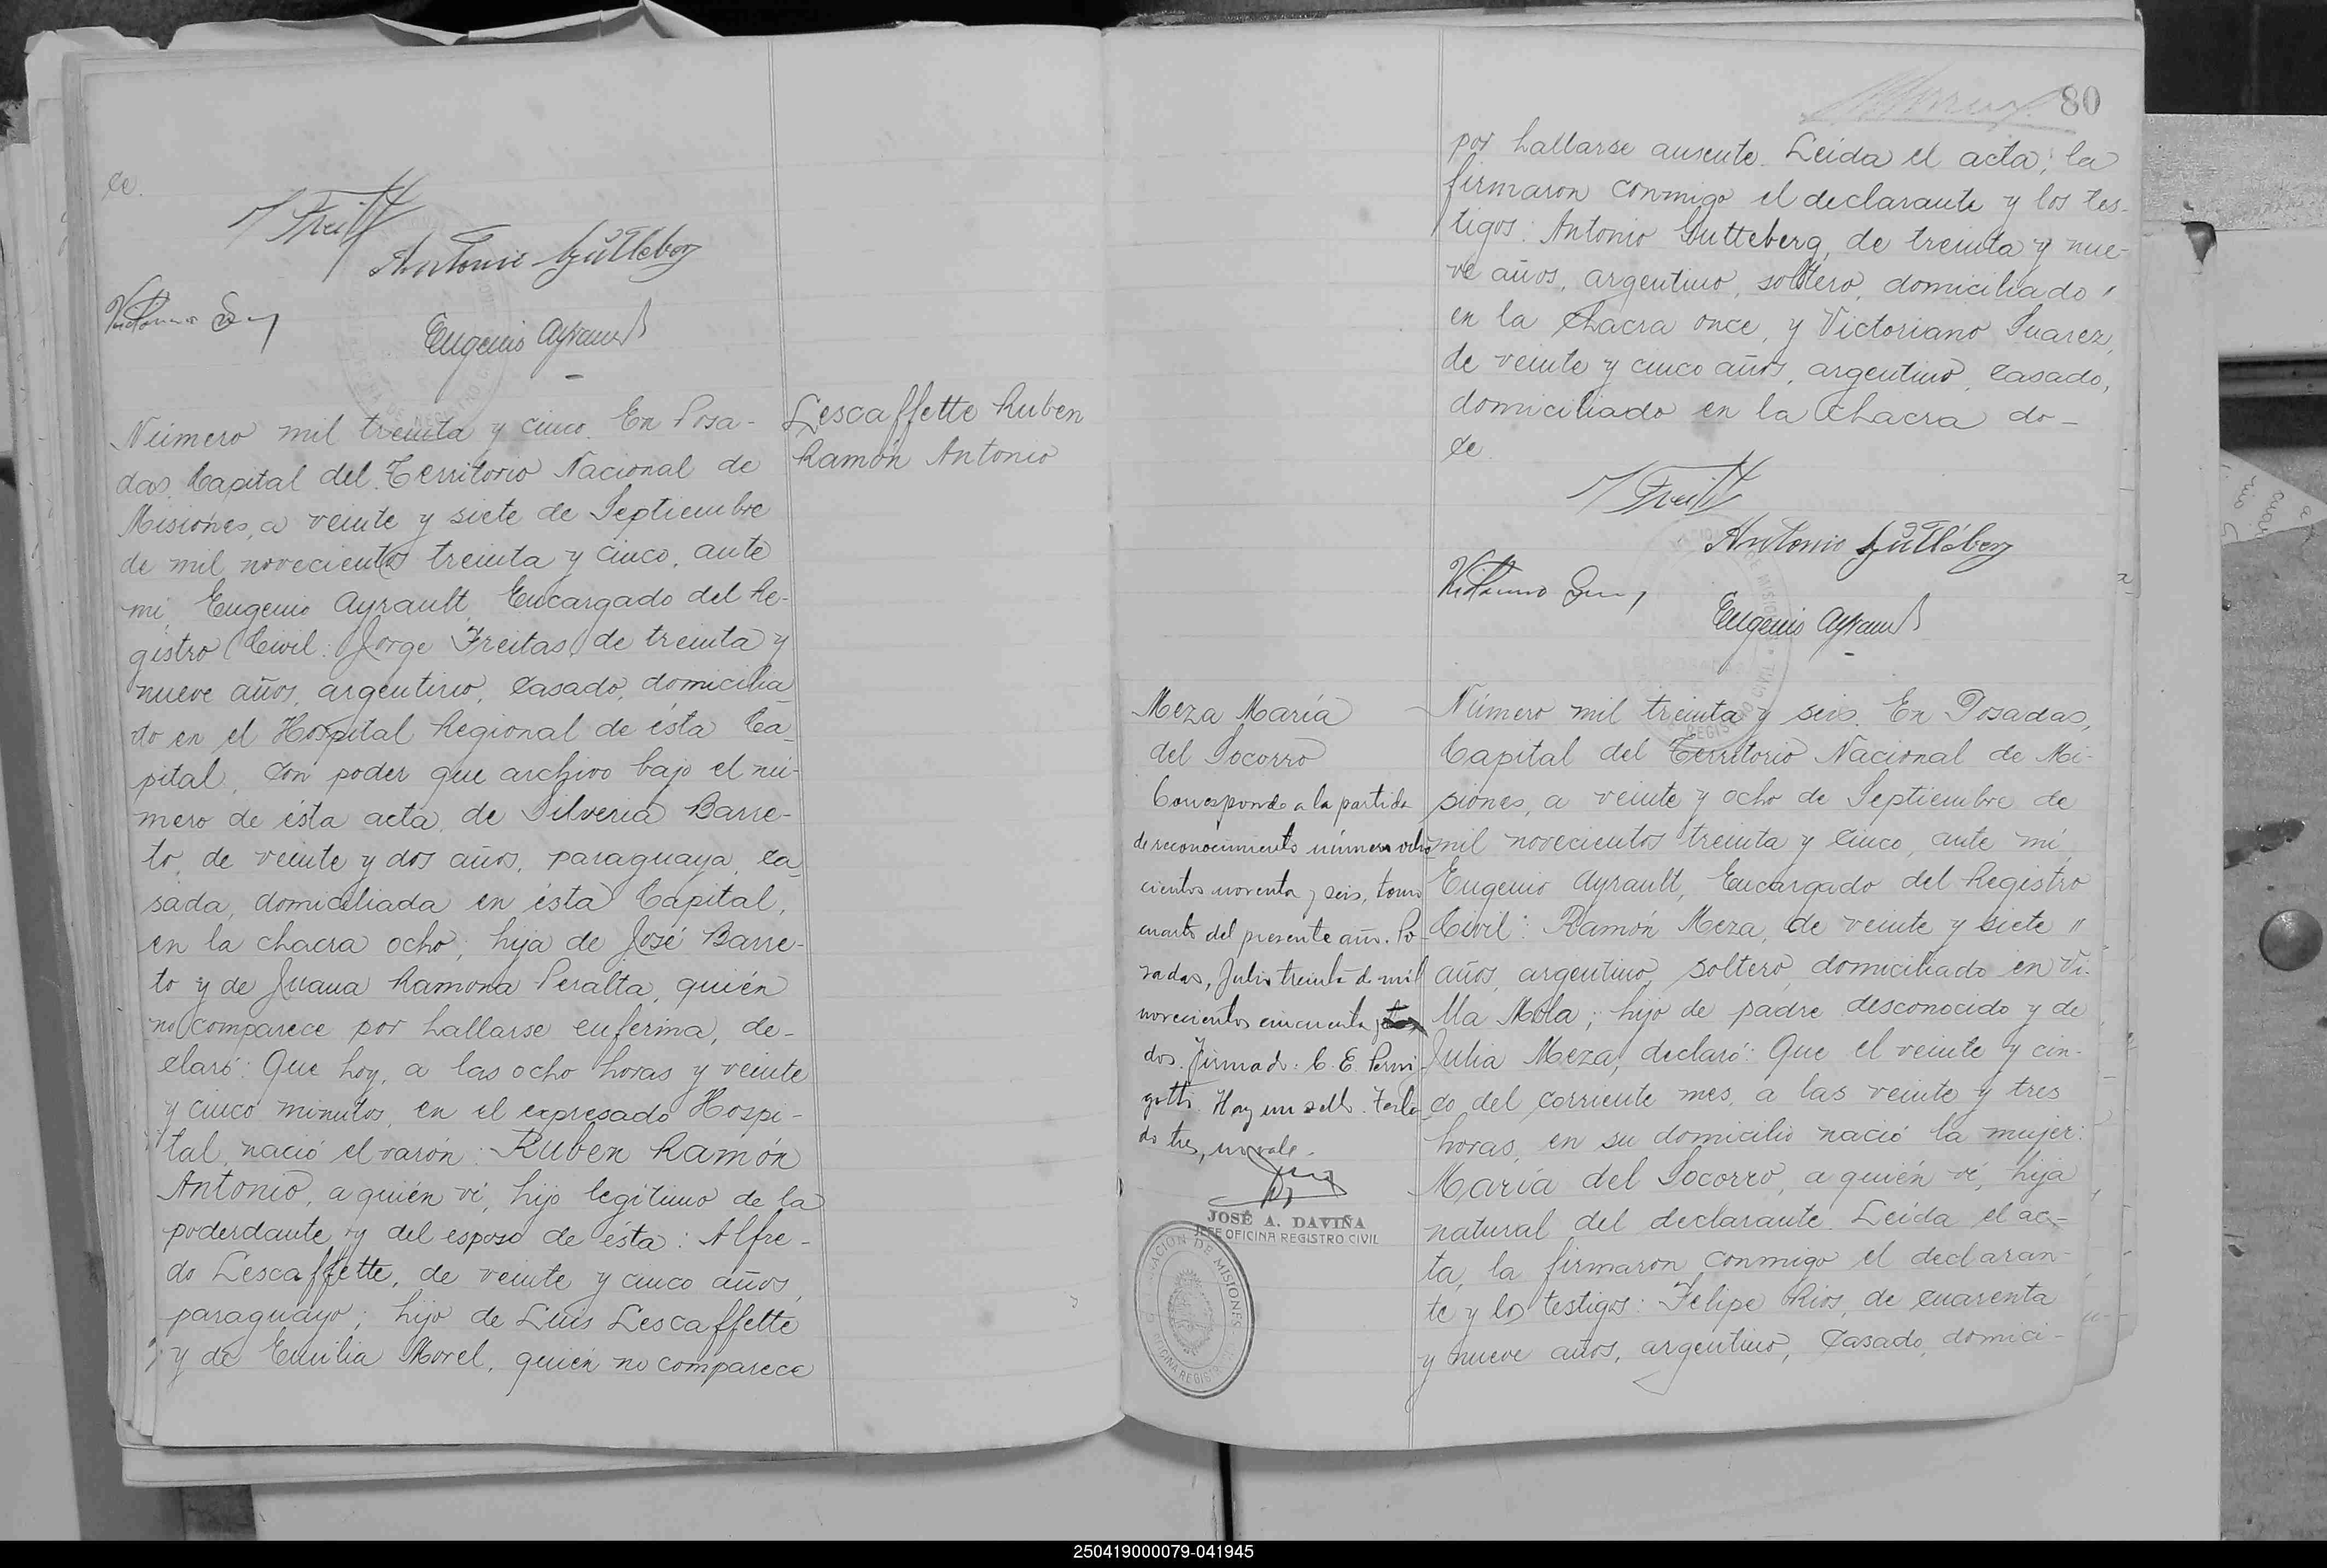 ce.
Antonio Gütleberg
Eugenio Ayrault
Número mil treinta y cinco. En Posa-
das, Capital del Territorio Nacional de
Misiones, a veinte y siete de Septiembre
de mil novecientos treinta y cinco, ante
mi, Eugenio Ayrault, Encargado del Re-
gistro Civil: Jorge Freitas, de treinta y
nueve años, argentino, casado, domicilia
do en el Hospital Regional de ésta Ca-
pital, con poder que archivo bajo el nú-
mero de ésta acta, de Silveria Barre-
to, de veinte y dos años, paraguaya, ca-
sada, domiciliada en ésta Capital,
en la chacra ocho; hija de José Barre-
to y de Juana Ramona Peralta, quién
no comparece por hallarse enferma, de-
claró: Que hoy, a las ocho horas y veinte
y cinco minutos, en el expresado Hospi-
tal, nació el varón: Ruben Ramón
Antonio, a quién ví, hijo legítimo de la
poderdante y del esposo de ésta: Alfre-
do Lescaffette, de veinte y cinco años,
paraguayo; hijo de Luis Lescaffette
y de Emilia Morel, quién no comparece
Lescaffette Ruben
Ramón Antonio
80
por hallarse ausente. Leída el acta, la
firmaron conmigo el declarante y los tes-
tigos: Antonio Gutteberg, de treinta y nue-
ve años, argentino, soltero, domiciliado
en la chacra once, y Victoriano Suarez,
de veinte y cinco años, argentino, casado,
domiciliado en la chacra do-
ce
Antonio Gütleberg
Eugenio Ayrault
Meza María
del Socorro
Corresponde a la partida
de reconocimiento número ocho
cientos noventa y seis, tomo
cuarto del presente año. Po-
sadas, Julio treinta de mil
novecientos cincuenta y
dos. Firmado: C. E. Perui-
gotti. Hay un sello. Testa-
do tres, no vale.
JOSÉ A. DAVIÑA
JEFE OFICINA REGISTRO CIVIL
Número mil treinta y seis. En Posadas,
Capital del Territorio Nacional de Mi-
siones, a veinte y ocho de Septiembre de
mil novecientos treinta y cinco, ante mí,
Eugenio Ayrault, Encargado del Registro
Civil: Ramón Meza, de veinte y siete "
años, argentino, soltero, domiciliado en Vi-
lla Mola; hijo de padre desconocido y de
Julia Meza, declaró: Que el veinte y cin-
co del corriente mes, a las veinte y tres
horas, en su domicilio nació la mujer:
María del Socorro, a quién ví, hija
natural del declarante. Leída el ac-
ta, la firmaron conmigo el declaran-
te y los testigos: Felipe Rios, de cuarenta
y nueve años, argentino, casado, domici-
250419000079-041945